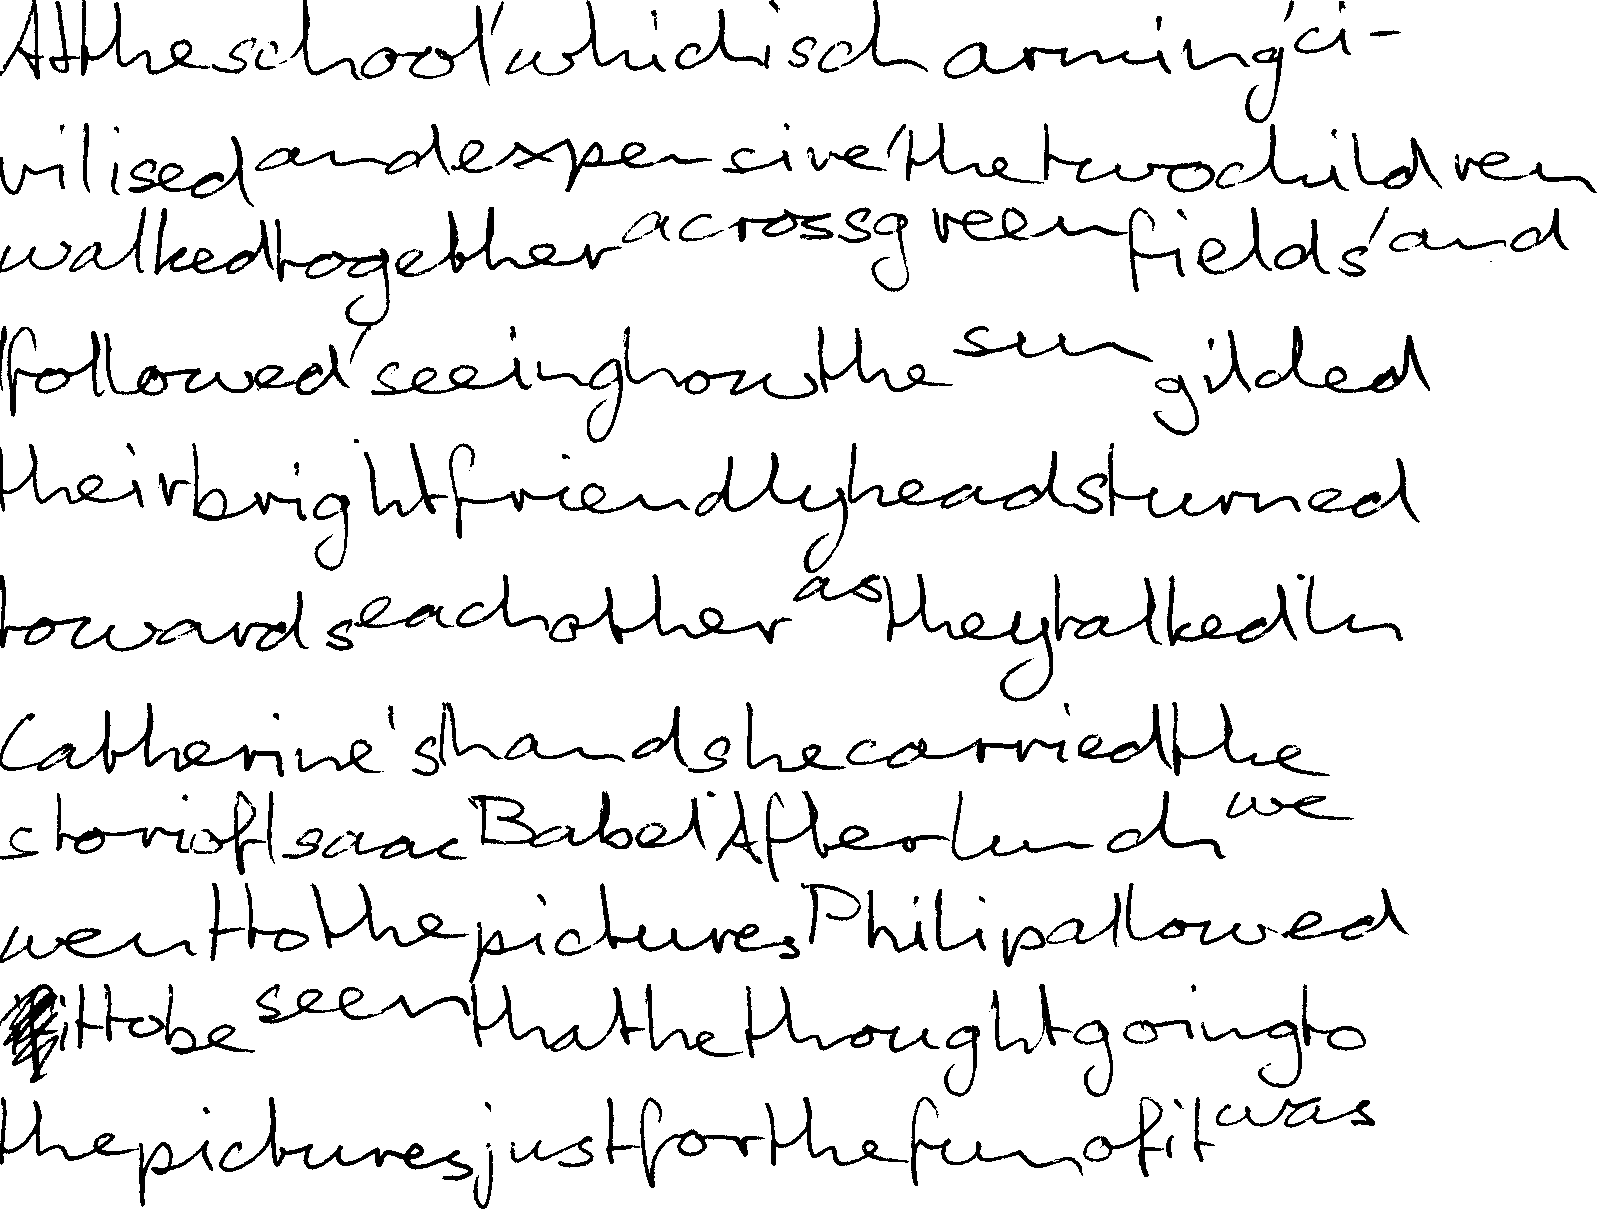 At the school, which is charming, ci-
vilised and expensive, the two children
walked together across green fields, and
I followed, seeing how the sun gilded
their bright friendly heads turned
towards each other as they talked. In
Catherine's hand she carried the
stori of Isaac Babel. After lunch we
went to the pictures. Philip allowed
it to be seen that he thought going to
the pictures just for the fun of it was